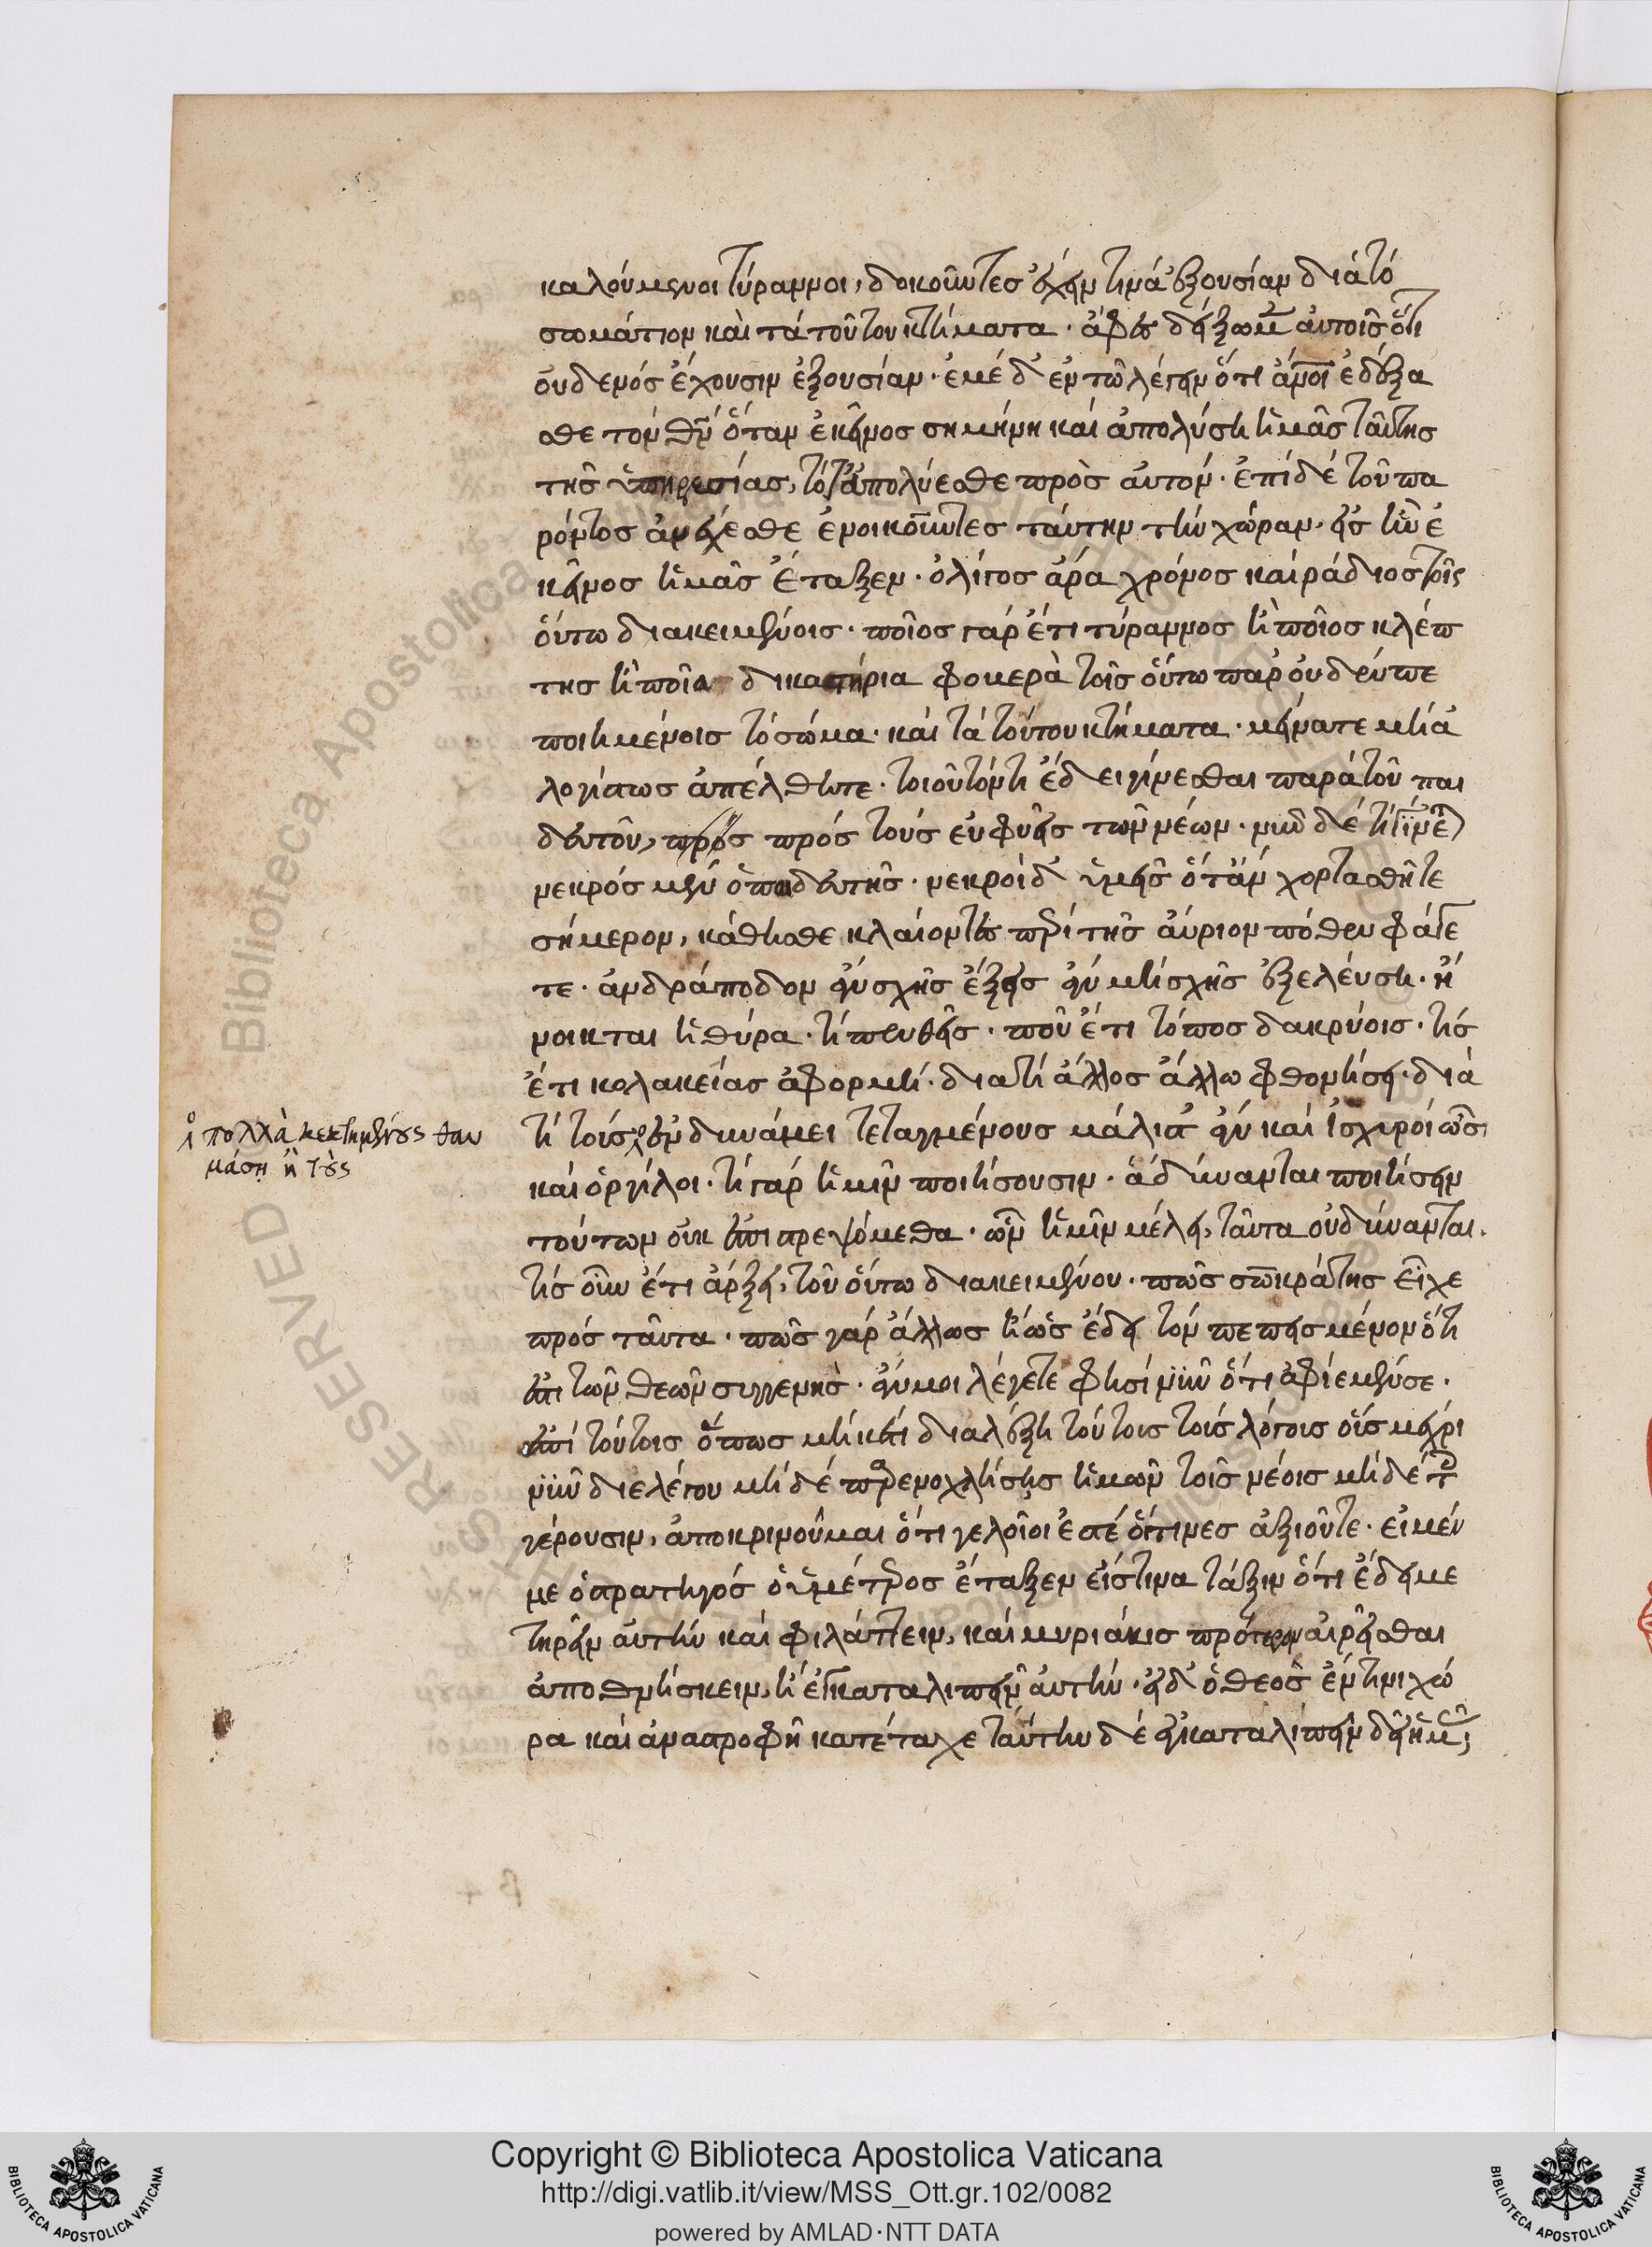 καλούμενοι τύραννοι, δοκοῦντες ἔχειν τινά ἐξουσίαν διά τό
σωμάτιον καὶ τά τούτου κτήματα · ἄφες δείξωμεν αὐτοῖς ὅτι
οὐδενός ἔχουσιν ἐξουσίαν · ἐμέ δ' ἐν τῷ λέγειν ὅτι ἄν̅οι ἐδέξα
σθε τόν θν̅ ὅταν ἐκεῖνος σημήνη καί ἀπολύση ἡμᾶς ταύτης
τῆς ὑπηρεσίας, τότ' ἀπολύεσθε πρὸς αὐτόν · ἐπί δέ τοῦ πα
ρόντος ἀνέχεσθε ἐνοικοῦντες ταύτην τήν χώραν, εἰς ἥν ἐ
κεῖνος ἡμᾶς ἔταξεν · ὀλίγος ἄρα χρόνος καί ράδιος τοῖς
οὕτω διακειμένοις · ποῖος γάρ ἔτι τύραννος ἢ ποῖος κλέπ
της ἢ ποῖα δικαστήρια φοβερὰ τοῖς οὕτω παρ' οὐδέν πε
ποιημένοις τό σῶμα · καί τά τούτου κτήματα · μείνατε μή ἀ
λογίστως ἀπέλθητε · τοιοῦτόν τι ἔδει γίνεσθαι παρά τοῦ παι
δευτοῦ, πρός πρός τούς εὐφυεῖς τῶν νέων · νῦν δέ τί γίνε)
νεκρός μέν ὁ παιδευτής · νεκροὶ δ' ὑμεῖς ὅταν χορτασθῆτε
σήμερον, κάθησθε κλαίοντες περί τῆς αὔριον πόθεν φάγε
τε · ἀνδράποδον ἄν σχῆς ἕξεις ἄν μή σχῆς ἐξελεύση · ἤ
νοικται ἡ θύρα · τί πενθεῖς · ποῦ ἔτι τόπος δακρύοις · τίς
ἔτι κολακείας ἀφορμή · διατί ἄλλος ἄλλω φθονήσει · διά
τί τούς ἐν δυνάμει τεταγμένους μάλιστ' ἄν καί ἰσχυροί ὦσι
καί ὀργίλοι · τί γάρ ἡμῖν ποιήσουσιν · ἅ δύνανται ποιήσειν
τούτων οὐκ ἐπιστρεψόμεθα · ὧν ἡμῖν μέλει, ταῦτα οὐ δύνανται ·
τίς οὖν ἔτι ἄρξει, τοῦ οὕτω διακειμένου · πῶς σωκράτης εἶχε
πρός ταῦτα · πῶς γάρ ἄλλως ἢ ὡς ἔδει τόν πεπεισμένον ὅτι
ἐστι τῶν θεῶν συγγενής · ἄν μοι λέγετε φησί νῦν ὅτι ἀφίεμέν σε ·
ἐπί τούτοις ὅπως μηκέτι διαλέξη τούτοις τοῖς λόγοις οἷς μέχρι
νῦν διελέγου μηδέ παρενοχλήσης ἡμῶν τοῖς νέοις μηδέ τ
γέρουσιν, ἀποκρινοῦμαι ὅτι γελοῖοι ἐστέ οἵτινες ἀξιοῦτε · εἰ μέν
με ὁ στρατηγός ὁ ὑμέτερος ἔταξεν εἴς τινα τάξιν ὅτι ἔδει με
τηρεῖν αὐτήν καί φυλάττειν, καί μυριάκις πρότερον αἱρεῖσθαι
ἀποθνήσκειν, ἤ ἐγκαταλιπεῖν αὐτήν · εἰ δ' ὁ θεός ἔν τινι χώ
ρα καί ἀναστροφῆ κατέταχε ταύτην δέ ἐγκαταλιπεῖν δεῖ ἡμᾶς;
ἰ πολλὰ κεκτημένους θαυ
μάση ἢ τοὺς
Copyright © Biblioteca Apostolica Vaticana
http://digi.vatlib.it/view/MSS_Ott.gr.102/0082
powered by AMLAD·NTT DATA